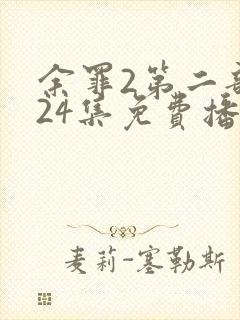 余罪2第二部
24集免費播
麦莉-塞勒斯